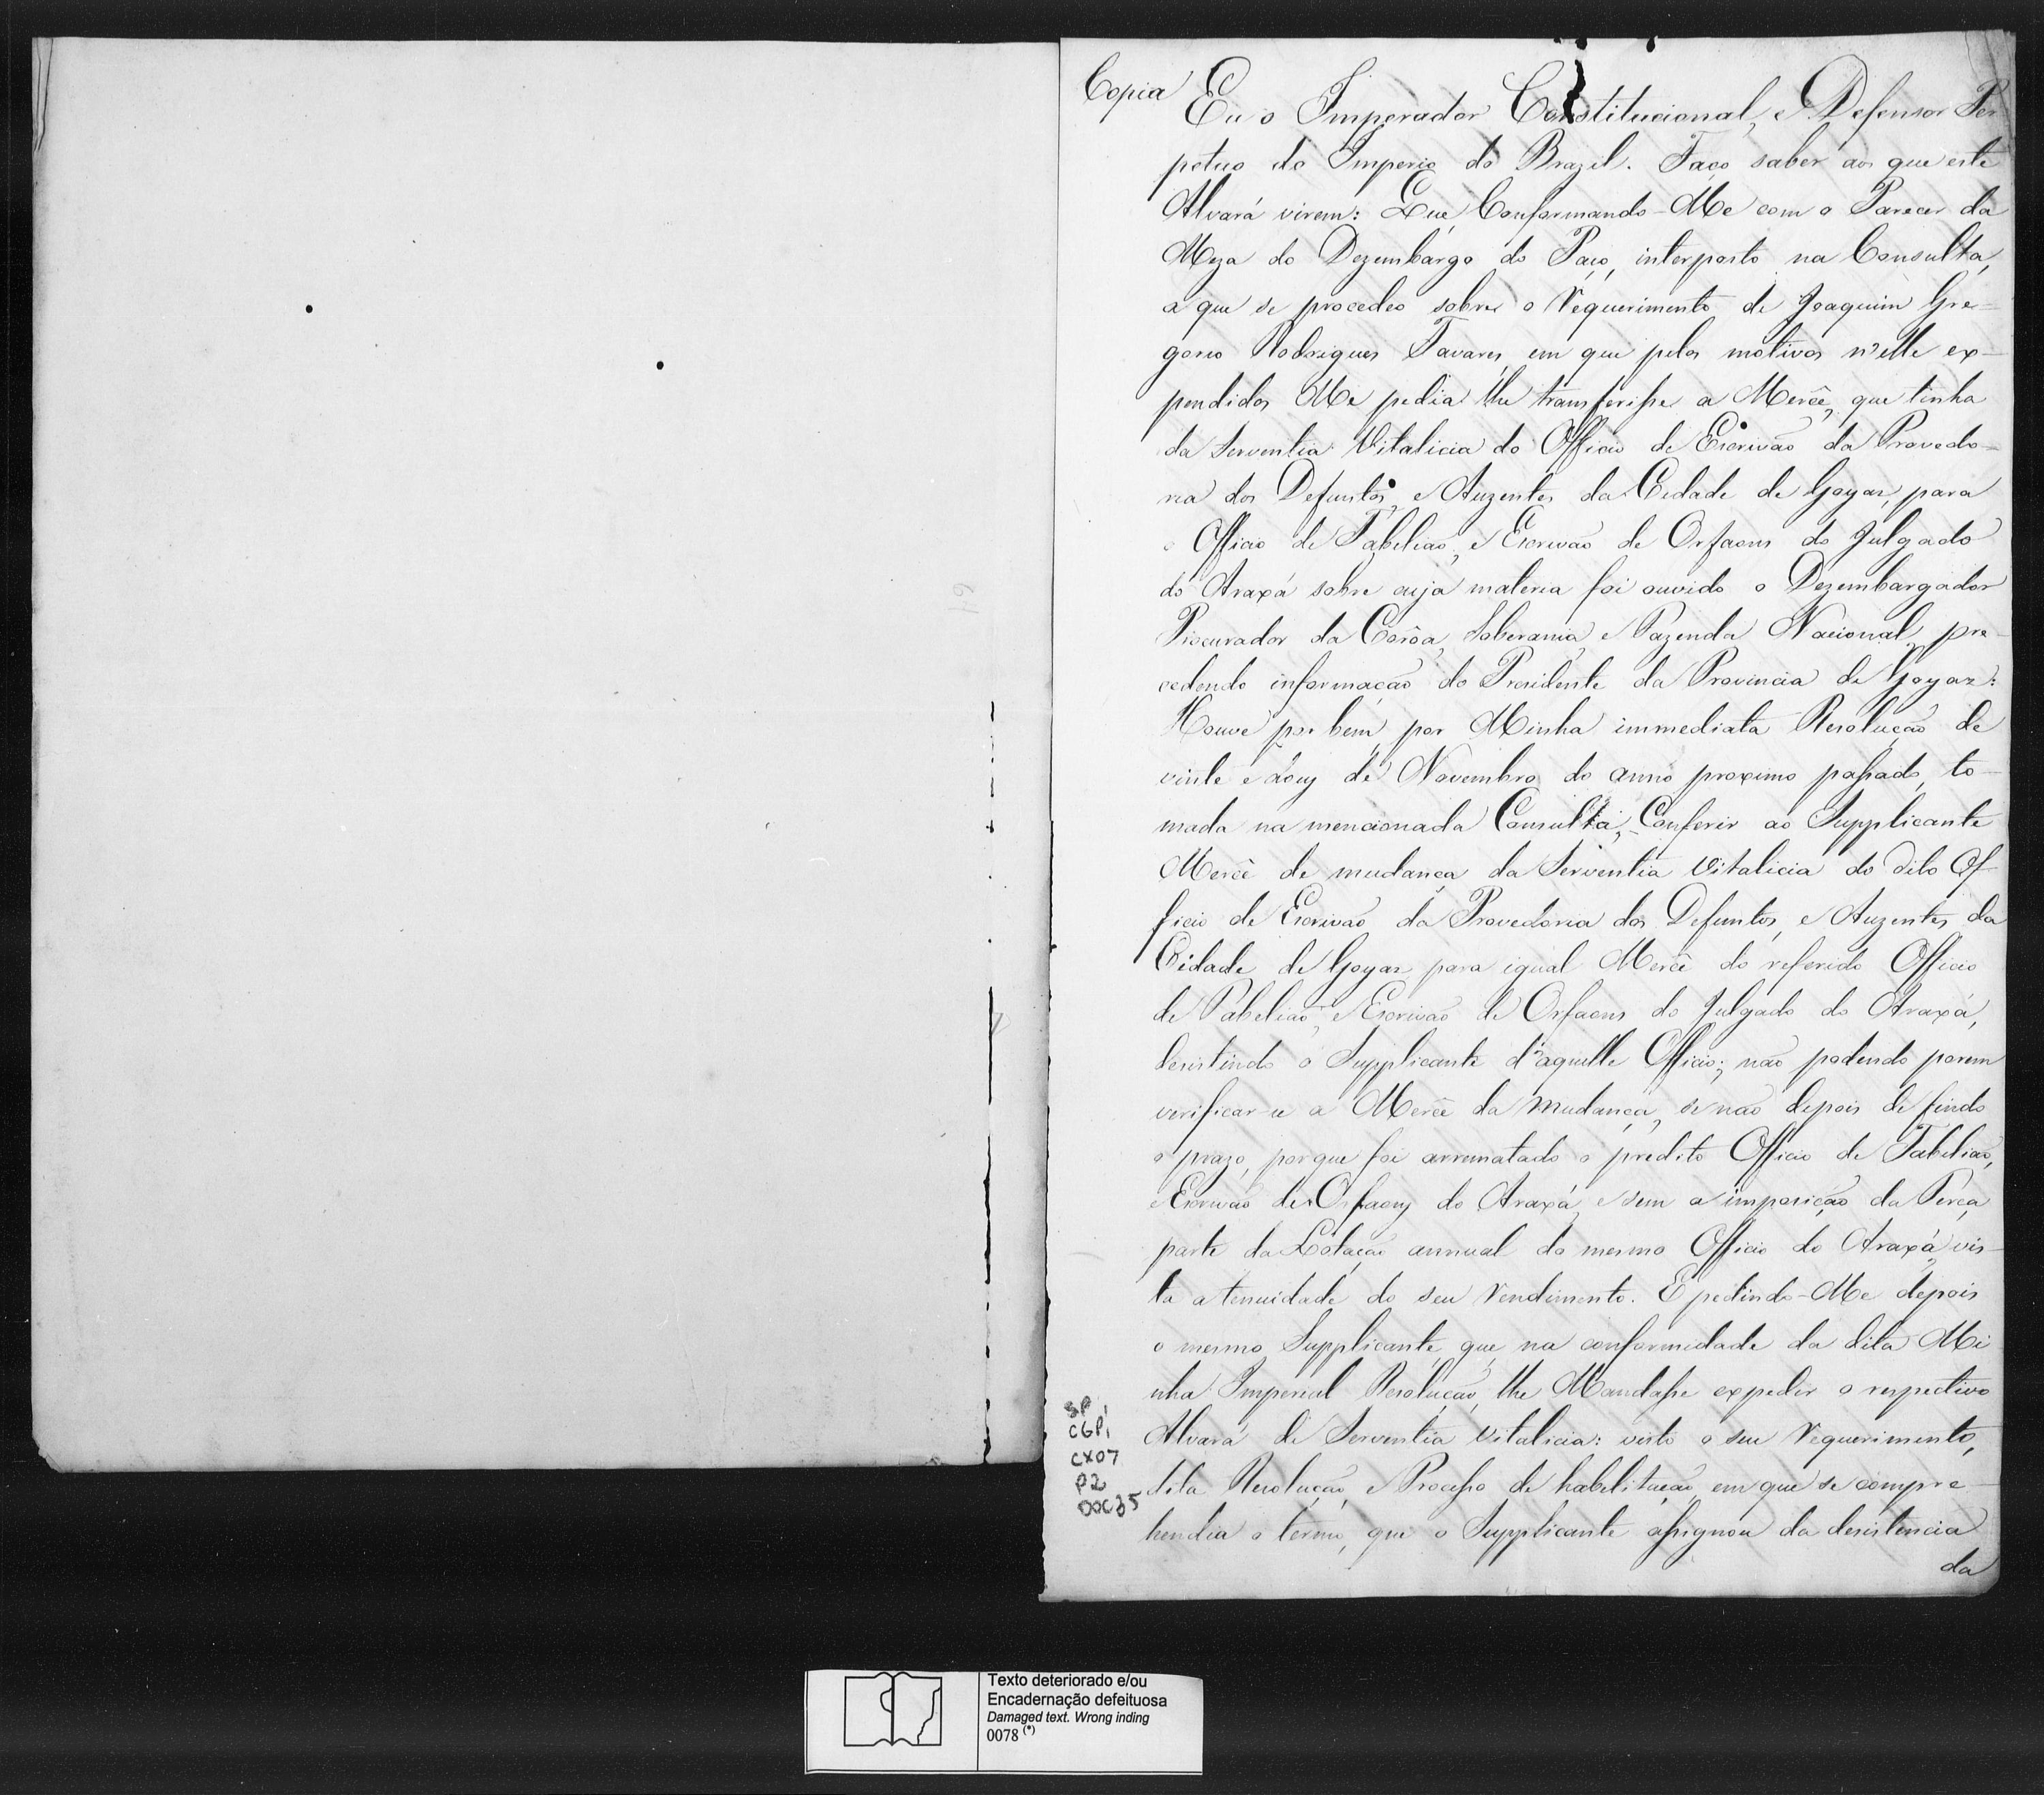 Copia
Eu o Imperador Constitucional, e Defensor Per
petuo do Imperio do Brazil. Faço saber aos que este
Alvará virem: Que, Conformando-Me com o Parecer da
Meza do Dezembargo do Paço, interposto na Consulta,
a que se procedeo sobre o requerimento de Joaquim Gre-
gorio Rodrigues Tavares, em que pelos motivos n'elle ex-
pendidos Me pedia lhe transferisse a Mercê, que tinha
da Serventia Vitalicia do Officio de Escrivão da Provedo-
ria dos Defuntos, e Auzentes da Cidade de Goyaz, para
o Officio de Tabelião, e Escrivão de Orfaons do Julgado
do Araxá sobre cuja materia foi ouvido o Dezembargador
Procurador da Corôa, Soberania, e Fazenda Nacional, pre-
cedendo informação do Presidente da Provincia de Goyaz:
Houve por bem, por Minha immediata Resolução de
vinte e dous de Novembro do anno proximo passado, to-
mada na mencionada Consulta, Conferir ao Supplicante
Mercê de mudança da Serventia Vitalicia do dito Of-
ficio de Escrivão da Provedoria dos Defuntos, e Auzentes da
Cidade de Goyaz para igual Mercê do referido Officio
de Tabelião, e Escrivão de Orfaons do Julgado do Araxá,
desistindo o Supplicante d'aquelle Officio; não podendo porem
verificar-se a Mercê da mudança, se não depois de findo
o prazo, porque foi arrematado o predito Officio de Tabelião,
e Escrivão de Orfaons do Araxá, e sem a imposição da Terça
parte da Lotação annual do mesmo Officio do Araxá, vis-
ta a tenuidade do seu rendimento. E pedindo-Me depois
o mesmo Supplicante, que, na conformidade da dita Mi
nha Imperial Resolução, lhe Mandasse expedir o respectivo
Alvará de Serventia Vitalicia: visto o seu requerimento,
dita Resolução, e Processo de habilitação, em que se compre-
hendia o termo, que o Supplicante assignou da desistencia
da
SP
CGP1
CX07
P2
DOC35
Texto deteriorado e/ou
Encadernação defeituosa
Damaged text. Wrong inding
0078 (*)